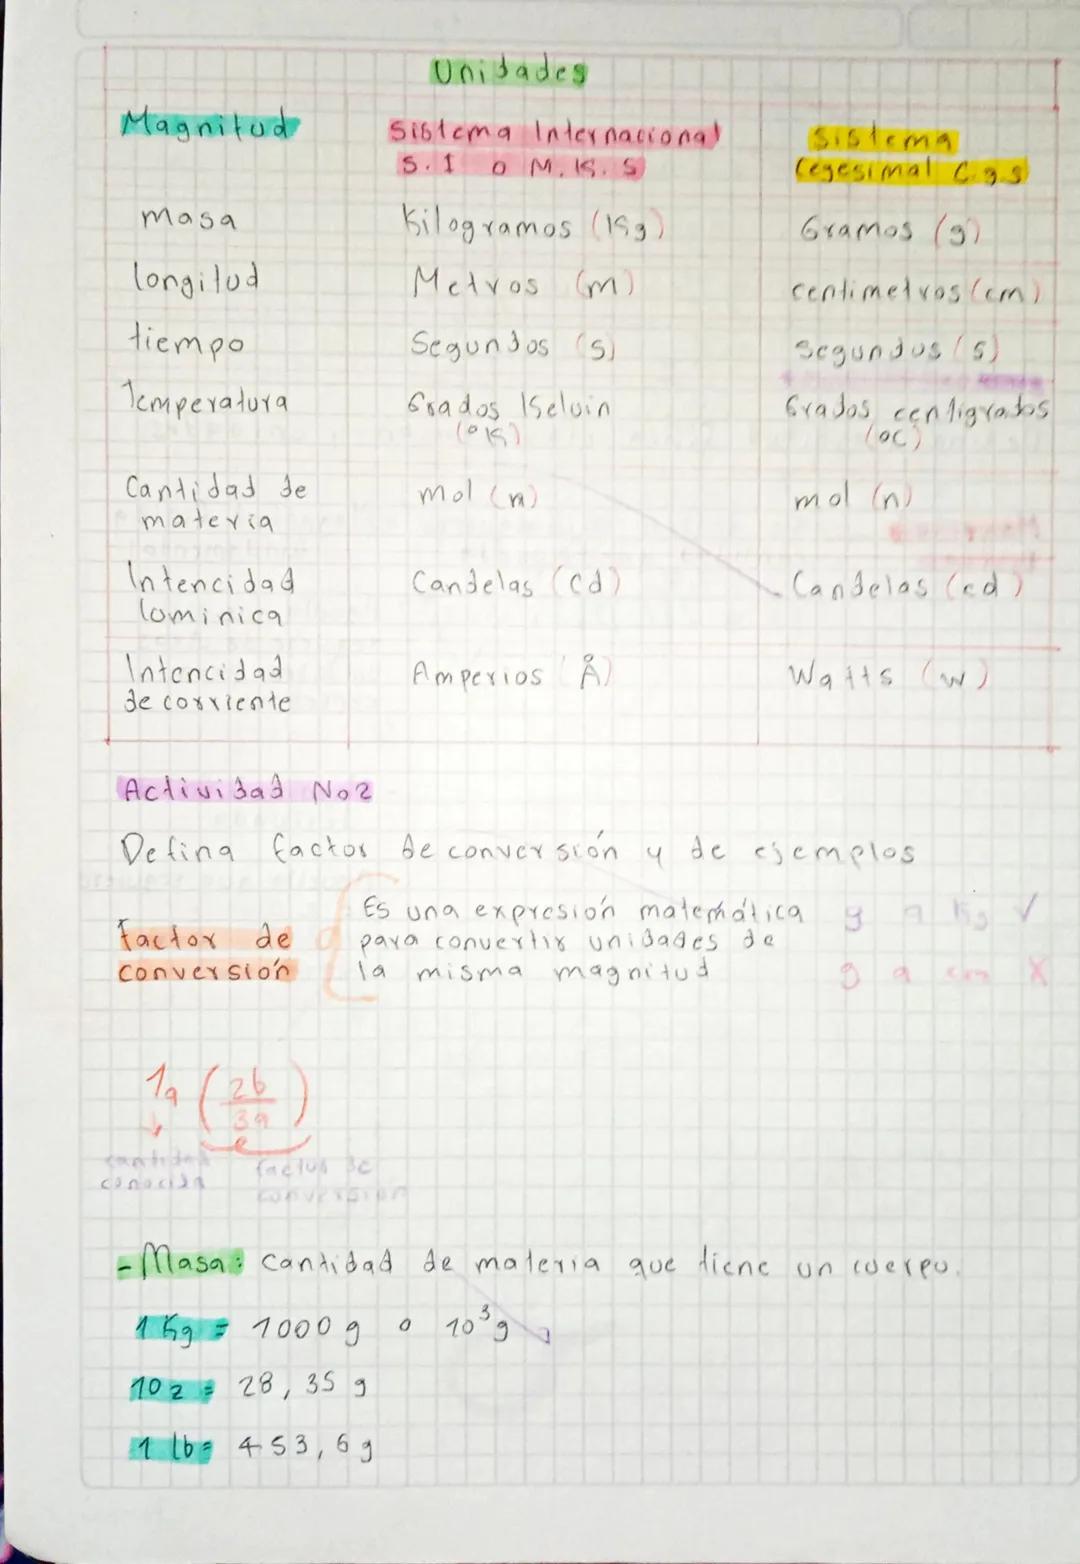 Unidades
Magnitud
Sistema Internacional
S.I o M.K.S
Sistema
Cegesimal C.g.s
masa
Kilogramos (Kg)
Gramos (g)
longitud
Metros (m)
centimetros (cm)
tiempo
Segundos (s)
segundos (s)
Temperatura
Grados Kelvin
(°K)
Grados centigrados
(°C)
Cantidad de
materia
mol (n)
mol (n)
Intencidad
lominica
Candelas (cd)
Candelas (cd)
Intencidad
de corriente
Amperios (Å)
Watts (w)
Actividad No2
Defina factor de conversión y de ejemplos
factor de
conversión
Es una expresión matemática
para convertir unidades de
la misma magnitud
g a Kg ✓
g a cm X
1a (2b/3a)
cantidad
conocida
factor de
conversion
- Masa: cantidad de materia que tiene un cuerpo.
1 Kg = 1000 g o 10³g
1 oz = 28,35 g
1 lb = 453,6 g